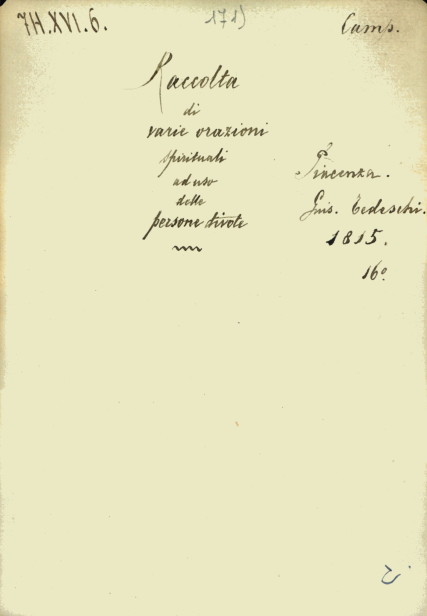 7H.XVI.6.
171)
Camp.
Raccolta
di
varie orazioni
spirituali
ad uso
delle
persone divote
Piacenza.
Gius. Tedeschi.
1815.
16º.